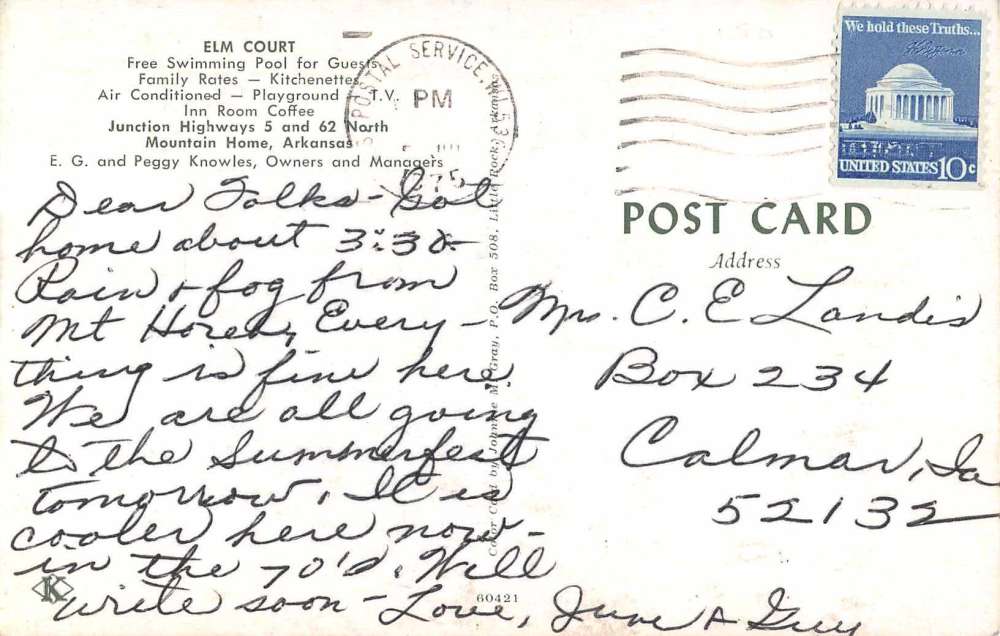 ELM COURT
Free Swimming Pool for Guests
Family Rates — Kitchenettes
Air Conditioned — Playground — T.V.
Inn Room Coffee
Junction Highways 5 and 62 North
Mountain Home, Arkansas
E. G. and Peggy Knowles, Owners and Managers
Dear Folks - Got
home about 3:30-
Rain & fog from
Mt Horeb, Every-
thing is fine here.
We are all going
to the Summerfest
tomorrow. It is
cooler here now-
in the 70's. Will
write soon - Love, June & Guy
K
60421
Color Card by Johnnie M. Gray, P.O. Box 508, Little Rock, Arkansas
POSTAL SERVICE, WI 53
PM
1975
We hold these Truths...
UNITED STATES 10c
POST CARD
Address
Mrs. C. E Landis
Box 234
Calmar, Ia
52132